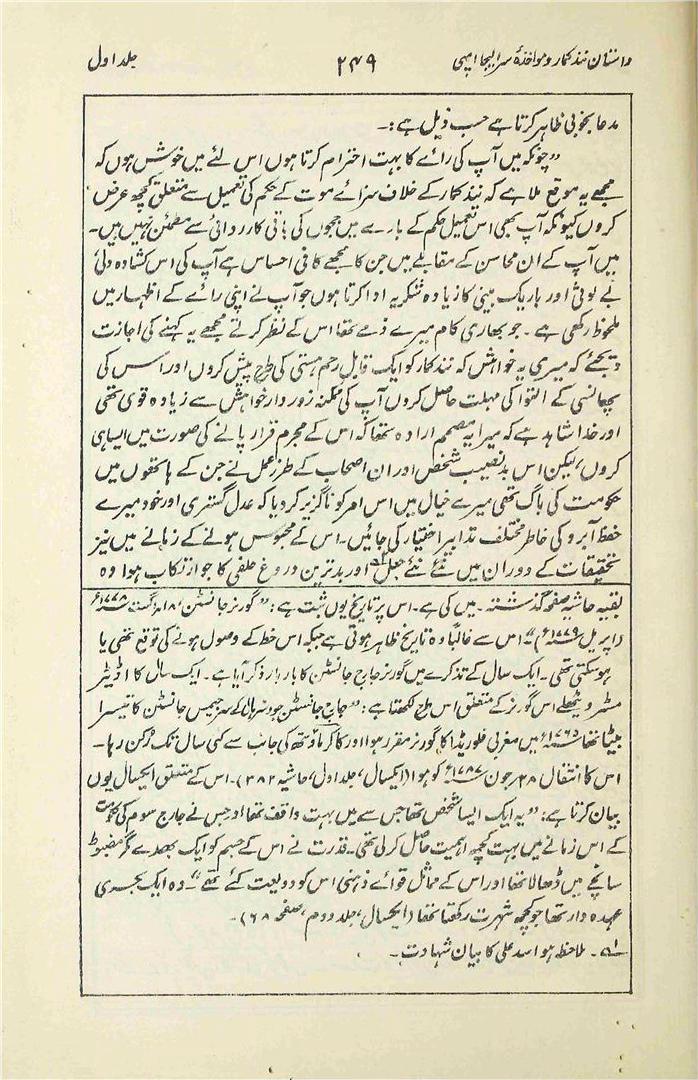 داستان نند کمار و مواخذۂ سر ایلیجا امپی
۲۴۹
جلد اول
مدعا بخوبی ظاہر کرتا ہے حسب ذیل ہے:۔
”چونکہ میں آپ کی رائے کا بہت احترام کرتا ہوں اس لئے میں خوش ہوں کہ
مجھے یہ موقع ملا ہے کہ نند کمار کے خلاف سزائے موت کے حکم کی تعمیل سے متعلق کچھ عرض
کروں کیونکہ آپ بھی اس تعمیل حکم کے بارے میں ججوں کی باقی کارروائی سے مطمئن نہیں ہیں۔
میں آپ کے ان محاسن کے مقابلے میں جن کا مجھے کافی احساس ہے آپ کی اس کشادہ دلی
بے لوثی اور باریک بینی کا زیادہ شکریہ ادا کرتا ہوں جو آپ نے اپنی رائے کے اظہار میں
ملحوظ رکھی ہے۔ جو بھاری کام میرے ذمے تھا اس کے نظر کرتے مجھے یہ کہنے کی اجازت
دیجئے کہ میری یہ خواہش کہ نند کمار کو ایک قابل رحم ہستی کی طرح پیش کروں اور اُس کی
پھانسی کے التوا کی مہلت حاصل کروں آپ کی ممکنہ زور دار خواہش سے زیادہ قوی تھی
اور خدا شاہد ہے کہ میرا یہ مصمم ارادہ تھا کہ اس کے مجرم قرار پانے کی صورت میں ایسا ہی
کروں، لیکن اس بدنصیب شخص اور ان اصحاب کے طرز عمل نے جن کے ہاتھوں میں
حکومت کی باگ تھی میرے خیال میں اس امر کو ناگزیر کر دیا کہ عدل گستری اور خود میرے
حفظ آبرو کی خاطر مختلف تدابیر اختیار کی جائیں۔ اس کے محبوس ہونے کے زمانے میں نیز
تحقیقات کے دوران میں نئے نئے جعل اور بدترین دروغ حلفی کا جو ارتکاب ہوا وہ
بقیہ حاشیہ صفحہ گذشتہ۔ میں کی ہے۔ اس پر تاریخ یوں ثبت ہے: ”گورنر جانسٹن ۱۸ اگست ۱۷۷۸ء
(اپریل ۱۷۷۹ء)“۔ اس سے غالباً وہ تاریخ ظاہر ہوتی ہے جبکہ اس خط کے وصول ہونے کی توقع تھی یا
ہو سکتی تھی۔ ایک سال کے تذکرے میں گورنر جارج جانسٹن کا بار بار ذکر آیا ہے۔ ایک سال کا اڈیٹر
مسٹر ویٹلے اس گورنر کے متعلق اس طرح لکھتا ہے: ”جارج جانسٹن جو دسرہال کے سر جیمس جانسٹن کا تیسرا
بیٹا تھا ۱۷۶۵ء میں مغربی فلوریڈا کا گورنر مقرر ہوا اور کاکرماؤتھ کی جانب سے کئی سال تک رکن رہا۔
اس کا انتقال ۲۸ جون ۱۷۸۷ء کو ہوا (ایکسال، جلد اول، حاشیہ ۳۸۲)۔ اس کے متعلق ایکسال یوں
بیان کرتا ہے: ”یہ ایک ایسا شخص تھا جس سے میں بہت واقف تھا اور جس نے جارج سوم کی حکومت
کے اس زمانے میں بہت کچھ اہمیت حاصل کر لی تھی۔ قدرت نے اس کے جسم کو ایک بھدے مگر مضبوط
سانچے میں ڈھالا تھا اور اس کے مماثل قوائے ذہنی اس کو ودیعت کئے تھے“۔ وہ ایک بحری
عہدہ دار تھا جو کچھ شہرت رکھتا تھا (ایکسال، جلد دوم، صفحہ ۶۸)۔
لہ۔ ملاحظہ ہو اسد علی کا بیان شہادت۔